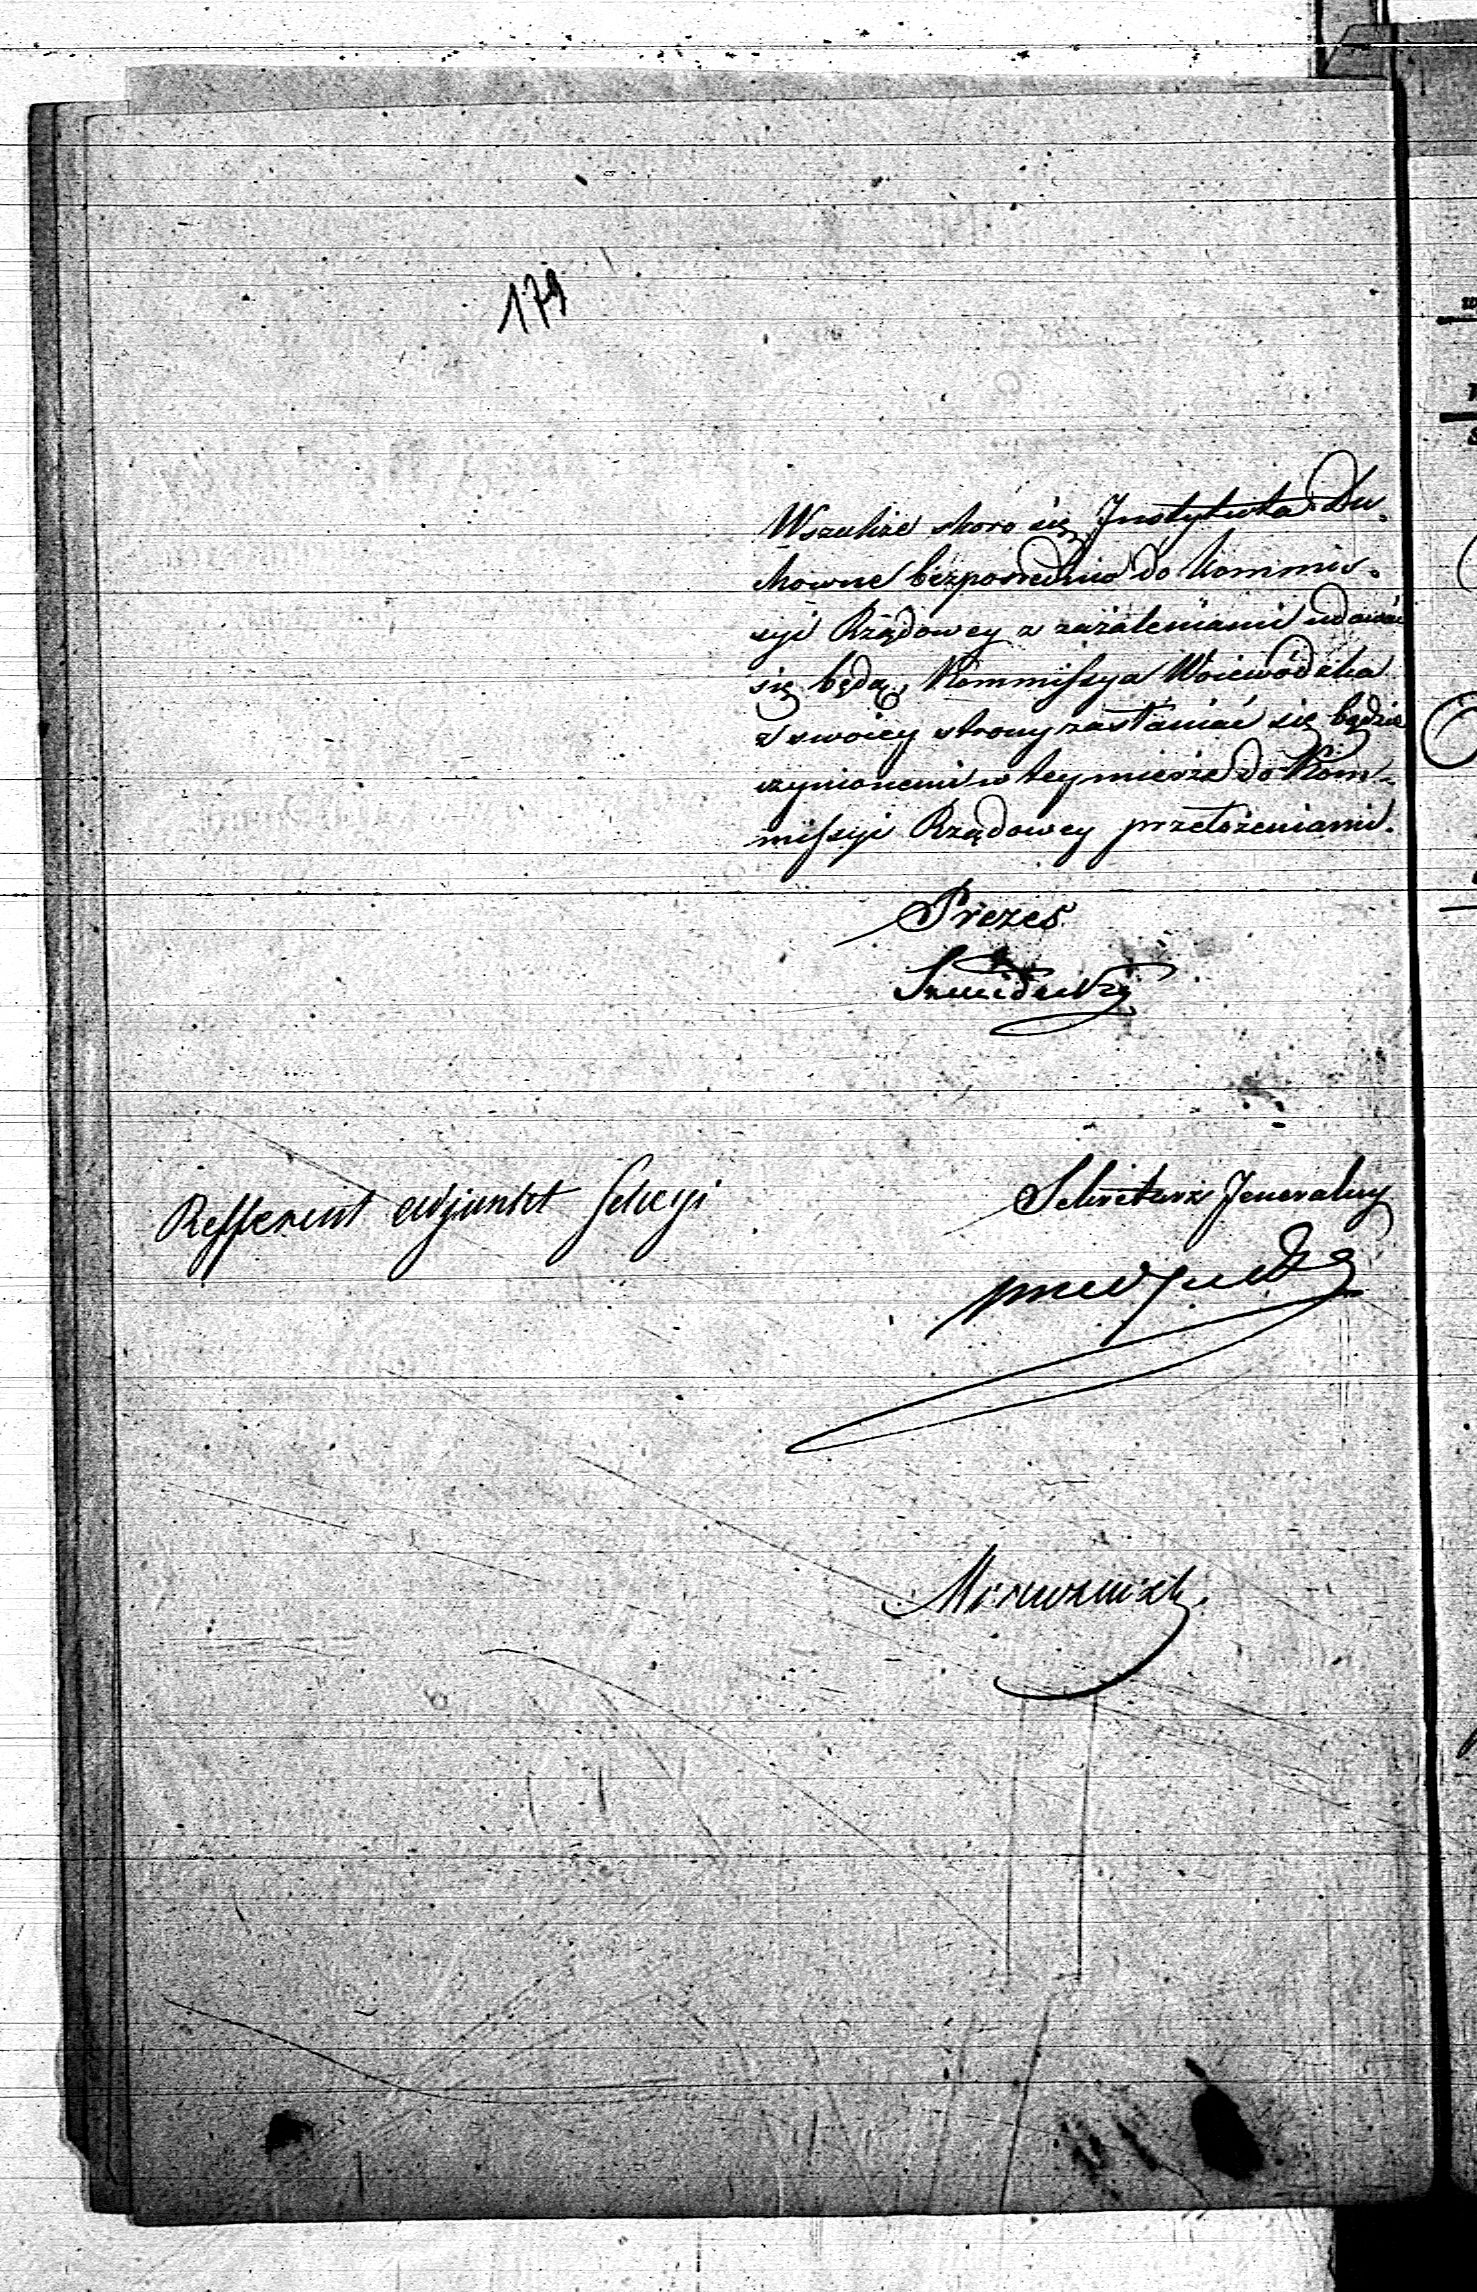 179
Wszakże skoro się Instytuta Du-
chowne bezpośrednio do Kommis-
syi Rządowey z zażaleniami udawać
się będą, Kommissya Woiewódzka
z swoiey strony zasłaniać się będzie
czynionemi w tey mierze do Kom-
missyi Rządowey przełożeniami.
Prezes
Sekretarz Jeneralny
Refferent Adjunkt Sekcyi